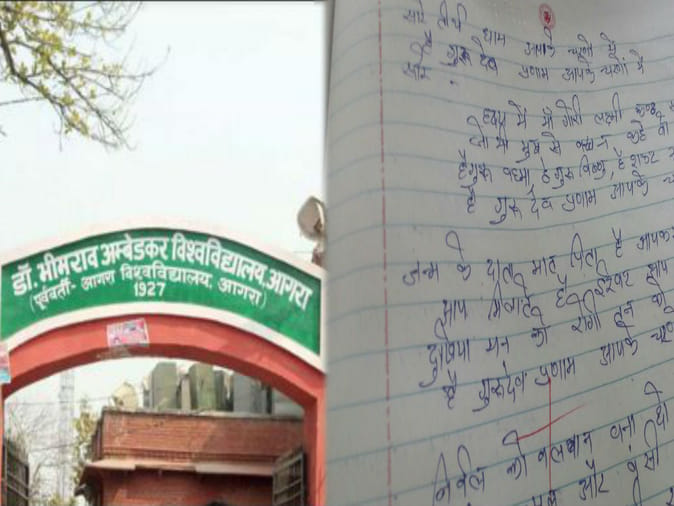 डॉ. भीमराव अम्बेडकर विश्वविद्यालय, आगरा
(पूर्ववर्ती- आगरा विश्वविद्यालय, आगरा)
1927
सारे तीर्थ धाम आपके चरणो में
है गुरु देव प्रणाम आपके चरणों में
हृदय में माँ गौरी लक्ष्मी
जो भी मुख से वचन कहे
है गुरु ब्रह्मा, है गुरु विष्णु, है शंकर
है गुरु देव प्रणाम आपके
जन्म के दाता मात पिता है आपके
आप मिलाते है ईश्वर आप
दुखिया मन को रोगी तन को
है गुरुदेव प्रणाम आपके
निर्बल को बलवान बना दो
और